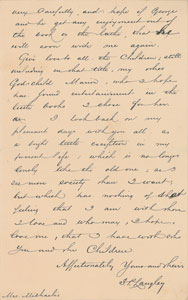 very carefully and hope if George
and he get any enjoyment out of
the book or the lathe, that he
will soon with me again.
Give love to all the Children; still
including in that title, my other
God-child Mamie, who I hope
has found entertainment in the
little books I chose for her
as I look back on my
pleasant days with you all as
a bright little exception in my
present life, which is no longer
lonely like the old one, as I
see more society than I want;
but which has nothing of that
feeling that I am with those
I love and who may, I hope,
love me, that I have with
you and the Children
Affectionately Yours and theirs
S.P. Langley
Mrs. Michaelis